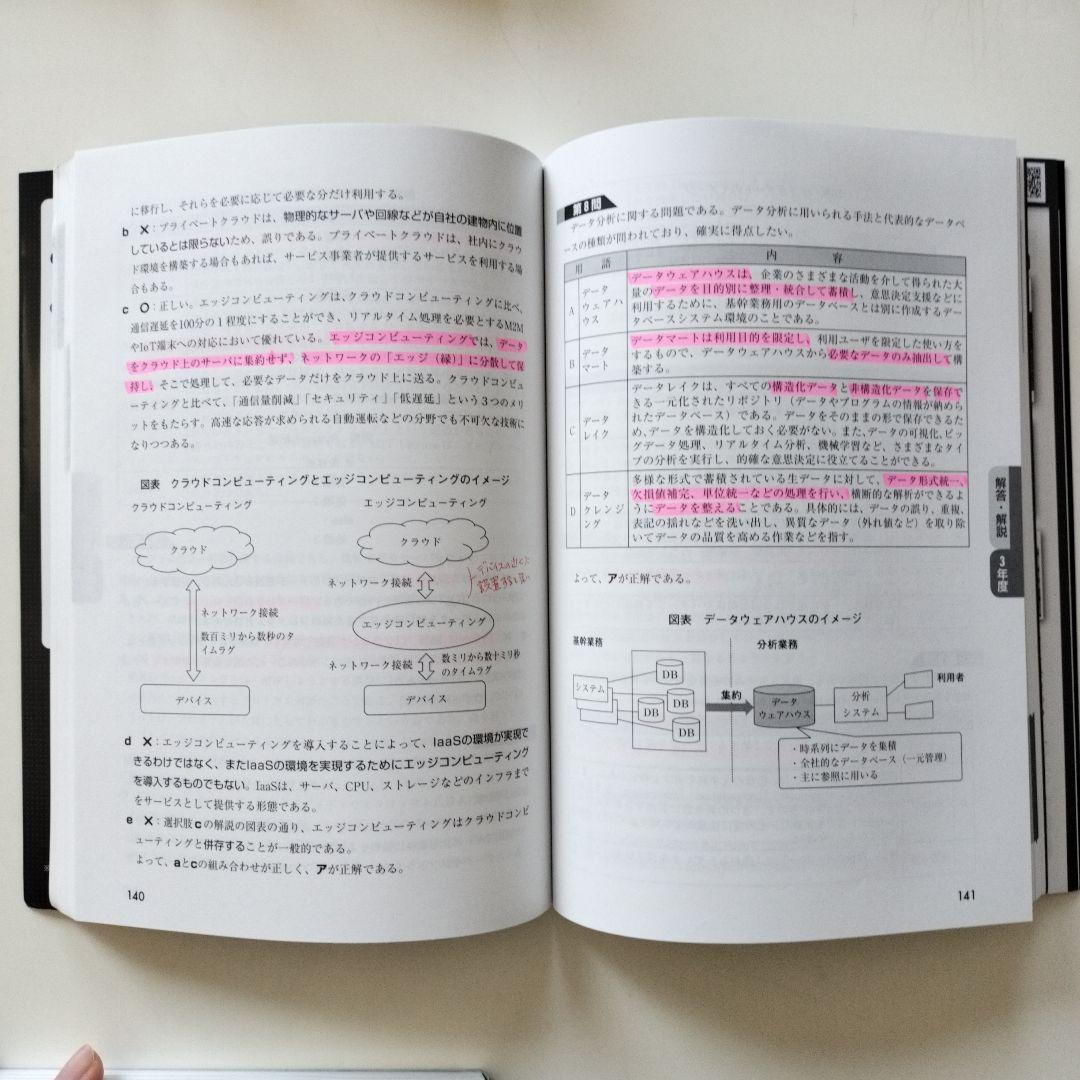 に移行し、それらを必要に応じて必要な分だけ利用する。
b ×：プライベートクラウドは、物理的なサーバや回線などが自社の建物内に位置
しているとは限らないため、誤りである。プライベートクラウドは、社内にクラウ
ド環境を構築する場合もあれば、サービス事業者が提供するサービスを利用する場
合もある。
c ○：正しい。エッジコンピューティングは、クラウドコンピューティングに比べ、
通信遅延を100分の1程度にすることができ、リアルタイム処理を必要とするM2M
やIoT端末への対応において優れている。エッジコンピューティングでは、データ
をクラウド上のサーバに集約せず、ネットワークの「エッジ（縁）」に分散して保
持し、そこで処理して、必要なデータだけをクラウド上に送る。クラウドコンピュ
ーティングと比べて、「通信量削減」「セキュリティ」「低遅延」という3つのメリ
ットをもたらす。高速な応答が求められる自動運転などの分野でも不可欠な技術に
なりつつある。
図表 クラウドコンピューティングとエッジコンピューティングのイメージ
クラウドコンピューティング
エッジコンピューティング
クラウド
クラウド
ネットワーク接続
デバイスの近くに
設置すると良い
ネットワーク接続
数百ミリから数秒のタ
イムラグ
エッジコンピューティング
ネットワーク接続
数ミリから数十ミリ秒
のタイムラグ
デバイス
デバイス
d ×：エッジコンピューティングを導入することによって、IaaSの環境が実現で
きるわけではなく、またIaaSの環境を実現するためにエッジコンピューティング
を導入するものでもない。IaaSは、サーバ、CPU、ストレージなどのインフラまで
をサービスとして提供する形態である。
e ×：選択肢cの解説の図表の通り、エッジコンピューティングはクラウドコンピ
ューティングと併存することが一般的である。
よって、aとcの組み合わせが正しく、アが正解である。
140
第8問
データ分析に関する問題である。データ分析に用いられる手法と代表的なデータベ
ースの種類が問われており、確実に得点したい。
用 語
内 容
A
データ
ウェアハ
ウス
データウェアハウスは、企業のさまざまな活動を介して得られた大
量のデータを目的別に整理・統合して蓄積し、意思決定支援などに
利用するために、基幹業務用のデータベースとは別に作成するデー
タベースシステム環境のことである。
B
データ
マート
データマートは利用目的を限定し、利用ユーザを限定した使い方を
するもので、データウェアハウスから必要なデータのみ抽出して構
築する。
C
データ
レイク
データレイクは、すべての構造化データと非構造化データを保存で
きる一元化されたリポジトリ（データやプログラムの情報が納めら
れたデータベース）である。データをそのままの形で保存できるた
め、データを構造化しておく必要がない。また、データの可視化、ビッ
グデータ処理、リアルタイム分析、機械学習など、さまざまなタイ
プの分析を実行し、的確な意思決定に役立てることができる。
D
データ
クレンジ
ング
多様な形式で蓄積されている生データに対して、データ形式統一、
欠損値補完、単位統一などの処理を行い、横断的な解析ができるよ
うにデータを整えることである。具体的には、データの誤り、重複、
表記の揺れなどを洗い出し、異質なデータ（外れ値など）を取り除
いてデータの品質を高める作業などを指す。
よって、アが正解である。
図表 データウェアハウスのイメージ
基幹業務
分析業務
システム
DB
DB
DB
DB
集約
データ
ウェアハウス
分析
システム
利用者
・時系列にデータを集積
・全社的なデータベース（一元管理）
・主に参照に用いる
解答・解説
3年度
141